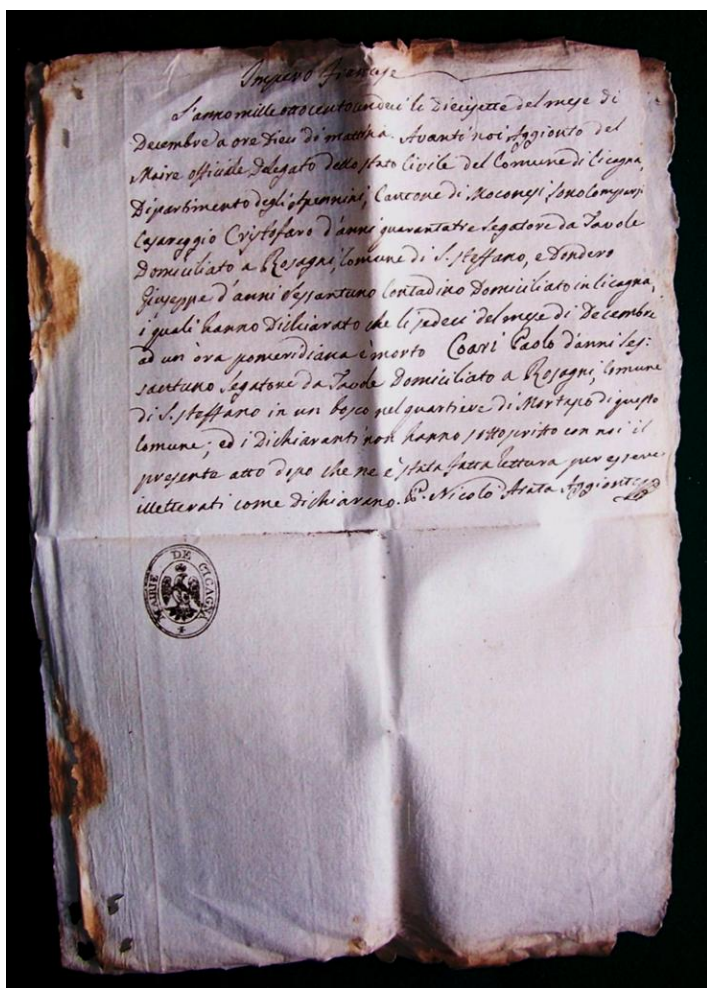 Impero Francese
L'anno mille ottocento undeci li diecisette del mese di
Decembre a ore dieci di mattina. Avanti noi Aggionto del
Maire officiale Delegato dello stato Civile del Comune di Cicagna,
Dipartimento degli Apennini, Cantone di Moconesi, sono Comparsi
Casareggio Cristofaro d'anni quarantatre Segatore da Tavole
Domiciliato a Rosagni, Comune di S. steffano, e Dondero
Giuseppe d'anni sessantuno Contadino Domiciliato in Cicagna,
i quali hanno Dichiarato che li sedeci del mese di Decembre
ad un'ora pomeridiana è morto Coari Paolo d'anni ses:
santuno Segatore da Tavole Domiciliato a Rosagni, Comune
di S. steffano in un bosco nel quartiere di di questo
Comune; ed i Dichiaranti non hanno sottoscritto con noi il
presente atto dopo che ne è stata fatta lettura per essere
illetterati come dichiarano. Nicolò Arata Aggionto
MAIRIE DE CICAGNA